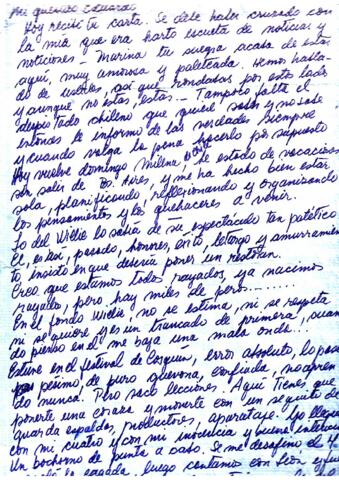 Mi querido Eduardo:
Hoy recibí tu carta. Se debe haber cruzado con
la mía que era harto escueta de noticias y
noticiones — Marina tu suegra acaba de estar
aquí, muy amorosa y paleteada. Hemos habla-
do de ustedes, así que rondados por este lado
y aunque no estás, estás — Tampoco falta el
despistado chileno que quiere saber y no sabe
entonces le informo de las verdades siempre
y cuando valga la pena hacerlo por supuesto
Hoy vuelve domingo Milena de estado de vacaciones
ser salir de Bs. Aires, y me ha hecho bien estar
sola, planificando, reflexionando y organizando
los pensamientos y los quehaceres a venir.
Lo del Willie lo sabía de su espectáculo tan patético
El, estos, pasado, honores, exito, letargo y amurramien
to insisto en que debería poner un restoran.
Creo que estamos todos rayados, ya nacimos
rayados, pero, hay miles de pero.......
En el fondo Willie, no se estima, ni se respeta
ni se quiere y es un trancado de primera, cuan
do pienso en el me baja una mala onda...
Estuve en el festival de Cosquín, error absoluto, lo pasé
pésimo, de puro quevona, confiada, no apren
do nunca. Pero saco lecciones. Aquí tienes que
ponerte una coraza y moverte con un séquito de
guarda espaldas, productores, aparataje. Yo llegué
con mi cuatro y con mi inocencia y buena intención
Un bochorno de punta a cabo. Se me desafinó el 4
la cagada, luego cantamos con León y fue